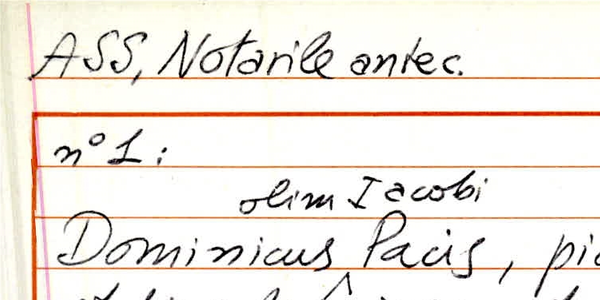 ASS, Notarile antec.
n° 1:
olim Iacobi
Dominicus Pacis,